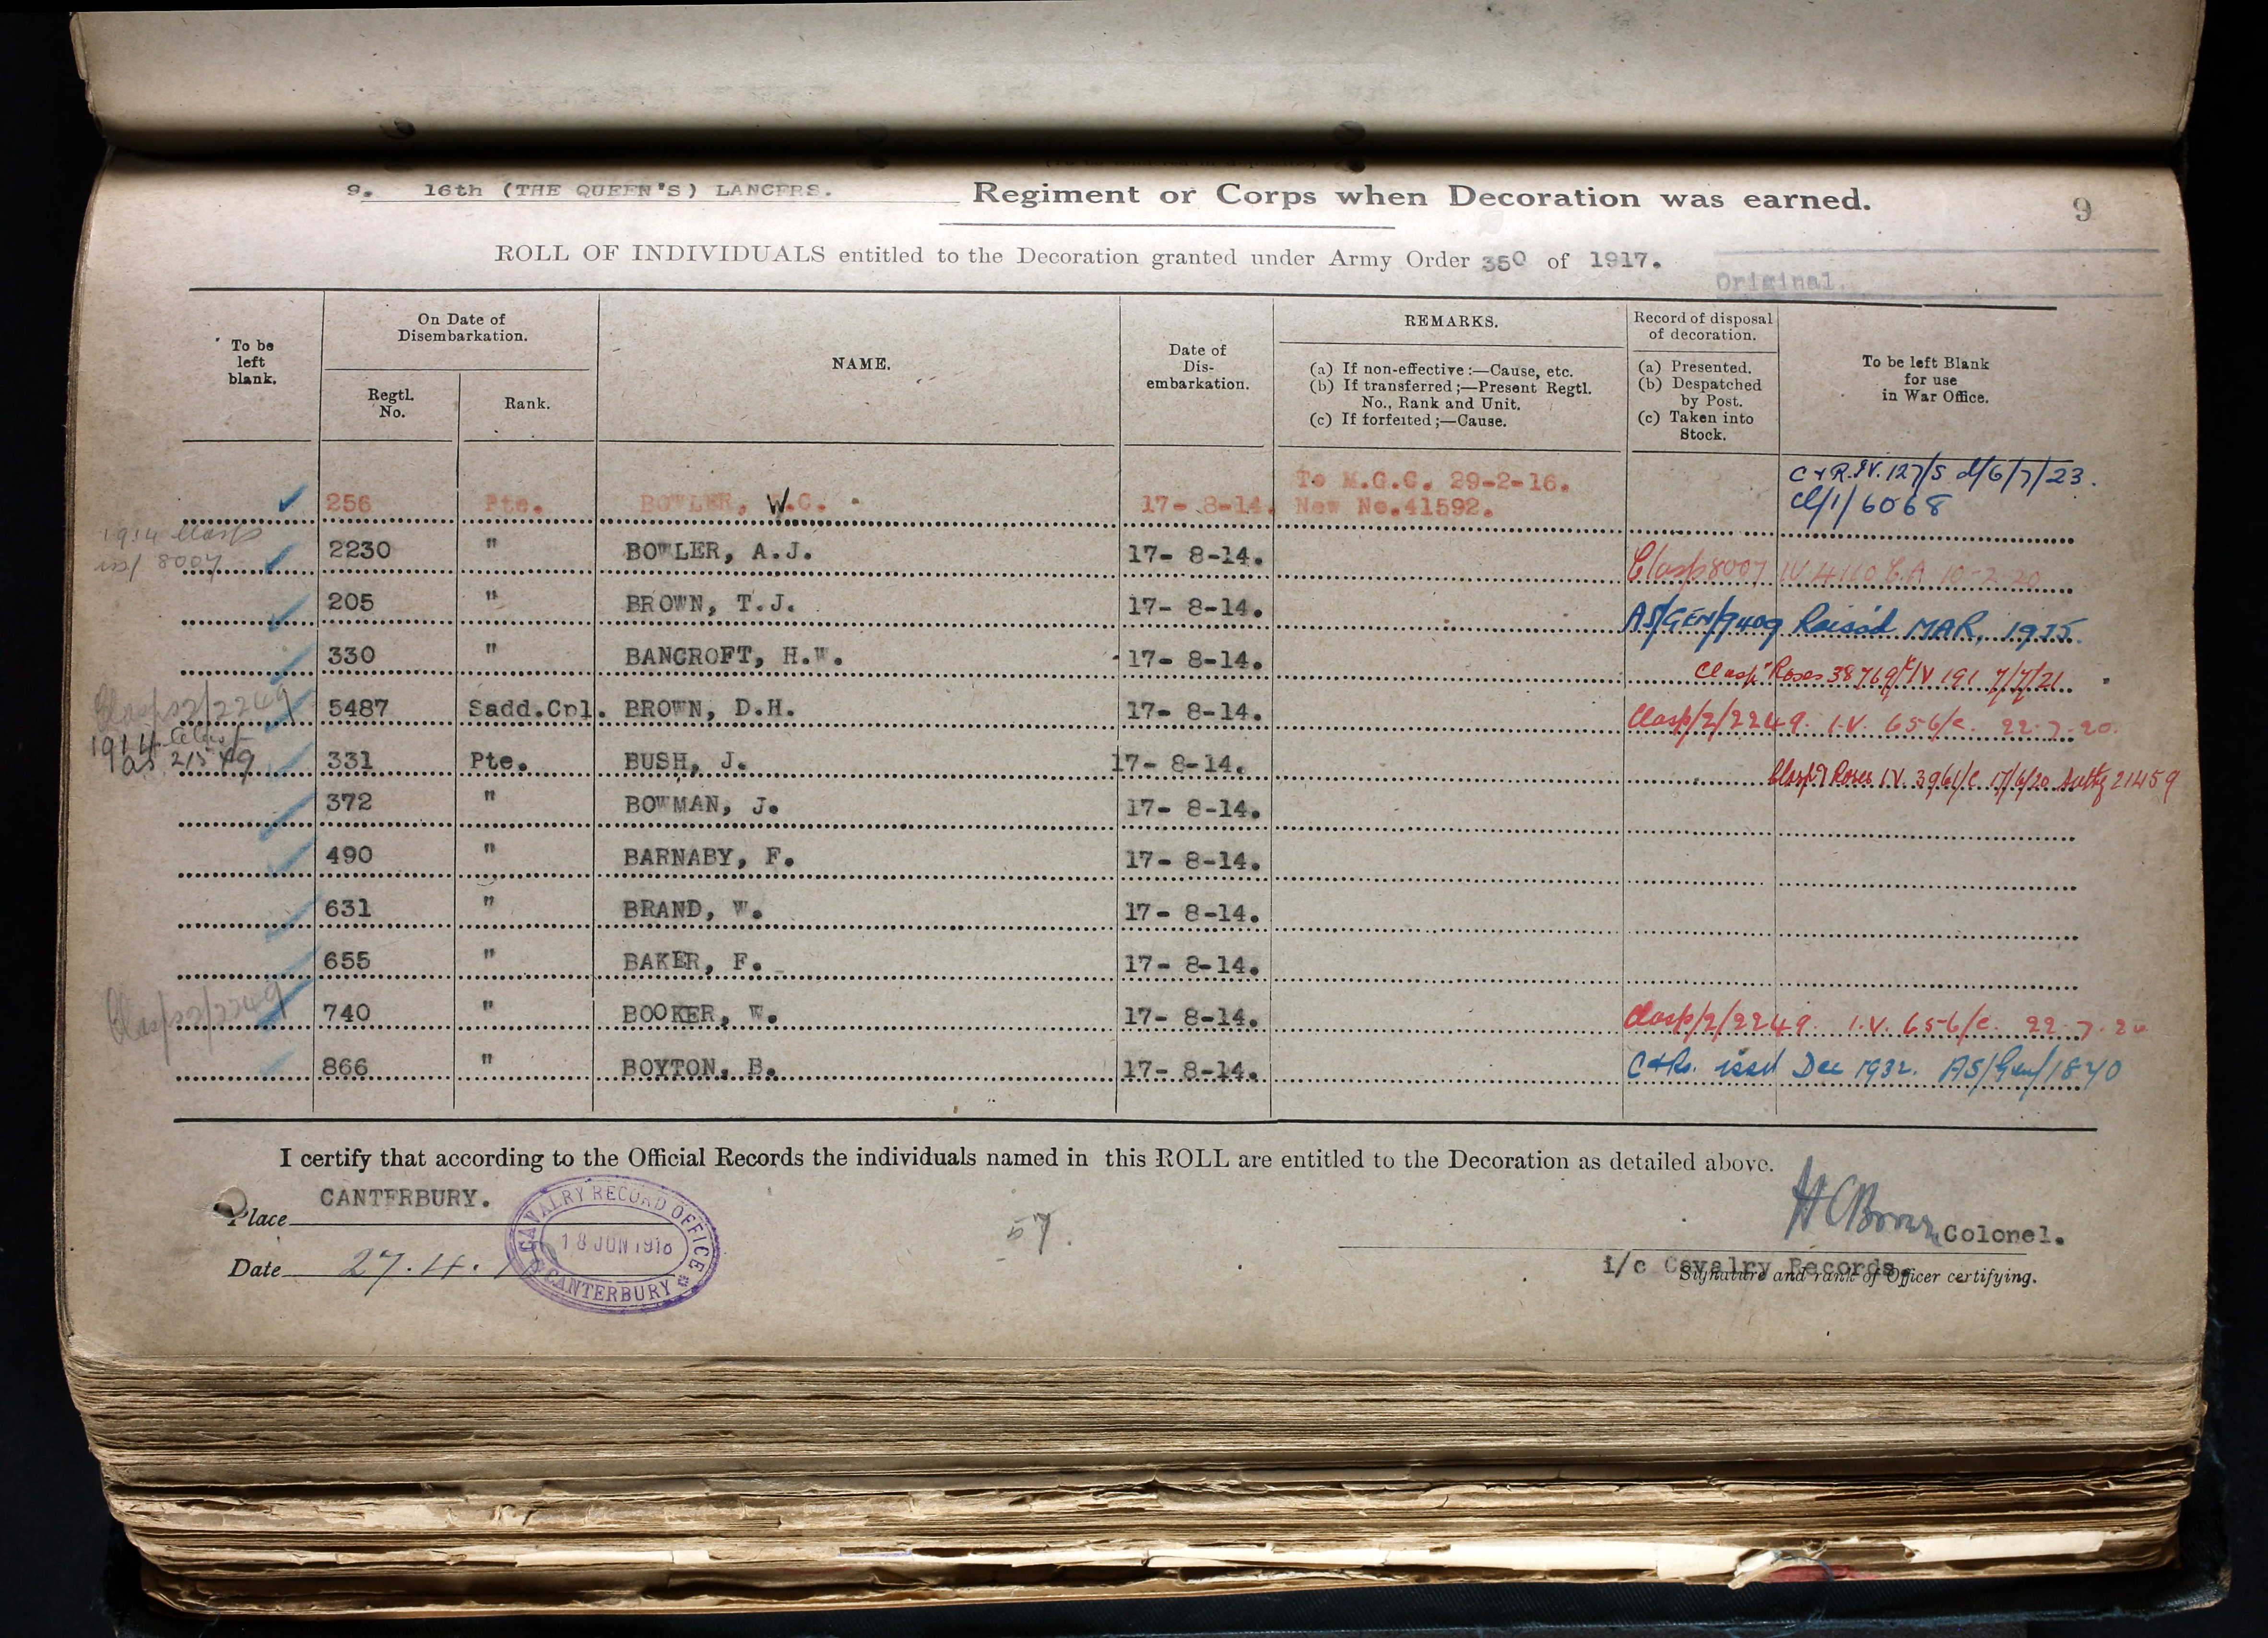 9. 16th (THE QUEEN'S) LANCERS. Regiment or Corps when Decoration was earned. 9
ROLL OF INDIVIDUALS entitled to the Decoration granted under Army Order 350 of 1917.
Original.
To be left blank.
On Date of Disembarkation.
Regtl. No.
Rank.
NAME.
Date of Dis-embarkation.
REMARKS.
(a) If non-effective:—Cause, etc.
(b) If transferred;—Present Regtl. No., Rank and Unit.
(c) If forfeited;—Cause.
Record of disposal of decoration.
(a) Presented.
(b) Despatched by Post.
(c) Taken into Stock.
To be left Blank for use in War Office.
256 Pte. BOWLER, W.C. 17- 8-14. To M.G.C. 29-2-16. New No.41592. C & R. IV. 127/S d/6/7/23. Cl/1/6068
1914 Clasp iss/ 8007
2230 " BOWLER, A.J. 17- 8-14. Clasp 8007 IV 4110 E.A 10-2-20
205 " BROWN, T.J. 17- 8-14. AS/GEN/9409 MAR. 1975.
330 " BANCROFT, H.W. 17- 8-14. Clasp Roses 38769 IV 191 7/7/21
Clasps 2/2249
5487 Sadd.Cpl. BROWN, D.H. 17- 8-14. Clasp/2/2249. I.V. 656/E. 22.7.20.
1914
331 Pte. BUSH, J. 17- 8-14. Clasp & Roses I.V. 3961/E 17/6/20 Authy 21459
372 " BOWMAN, J. 17- 8-14.
490 " BARNABY, F. 17- 8-14.
631 " BRAND, W. 17- 8-14.
655 " BAKER, F. 17- 8-14.
Clasps 2/2249
740 " BOOKER, W. 17- 8-14. Clasp/2/2249. I.V. 656/E. 22.7.20
866 " BOYTON, B. 17- 8-14. C & Rs. issd Dec 1932. AS/Gen/1840
I certify that according to the Official Records the individuals named in this ROLL are entitled to the Decoration as detailed above.
Place CANTERBURY.
CAVALRY RECORD OFFICE
18 JUN 1918
CANTERBURY
57.
Colonel.
Date 27.4.
i/c Cavalry Records.
Signature and rank of Officer certifying.